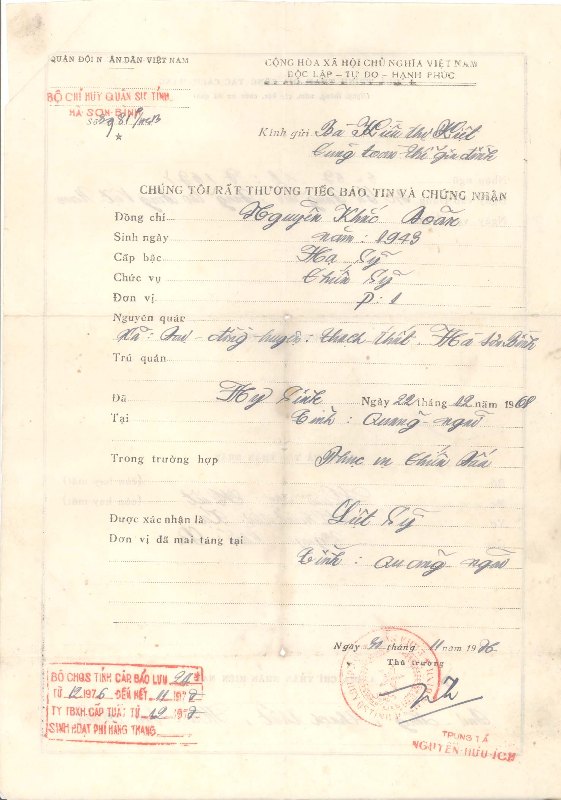 QUÂN ĐỘI NHÂN DÂN VIỆT NAM
CỘNG HÒA XÃ HỘI CHỦ NGHĨA VIỆT NAM
ĐỘC LẬP - TỰ DO - HẠNH PHÚC
BỘ CHỈ HUY QUÂN SỰ TỈNH
HÀ SƠN BÌNH
Số
Kính gửi Bà Kiều thị Kiết
Cùng toàn thể gia đình
CHÚNG TÔI RẤT THƯƠNG TIẾC BÁO TIN VÀ CHỨNG NHẬN
Đồng chí Nguyễn Khắc Đoàn
Sinh ngày năm: 1943
Cấp bậc Hạ Sỹ
Chức vụ Chiến Sỹ
Đơn vị P: 1
Nguyên quán
Xã: Đại - đồng - huyện: thạch thất. Hà Sơn Bình
Trú quán
Đã Hy Sinh Ngày 22 tháng 12 năm 1968
Tại Tỉnh: Quảng ngãi
Trong trường hợp Phục vụ Chiến Đấu
Được xác nhận là Liệt Sỹ
Đơn vị đã mai táng tại
Tỉnh: Quảng ngãi
Ngày tháng 11 năm 1976
Thủ trưởng
BỘ CHQS TỈNH CẤP BÁO LƯU
TỪ 12 1976 ĐẾN HẾT 11 197
TY TBXH. CẤP TUẤT TỪ 12 197
SINH HOẠT PHÍ HÀNG THÁNG
TRUNG TÁ
NGUYỄN-HỮU-ÍCH